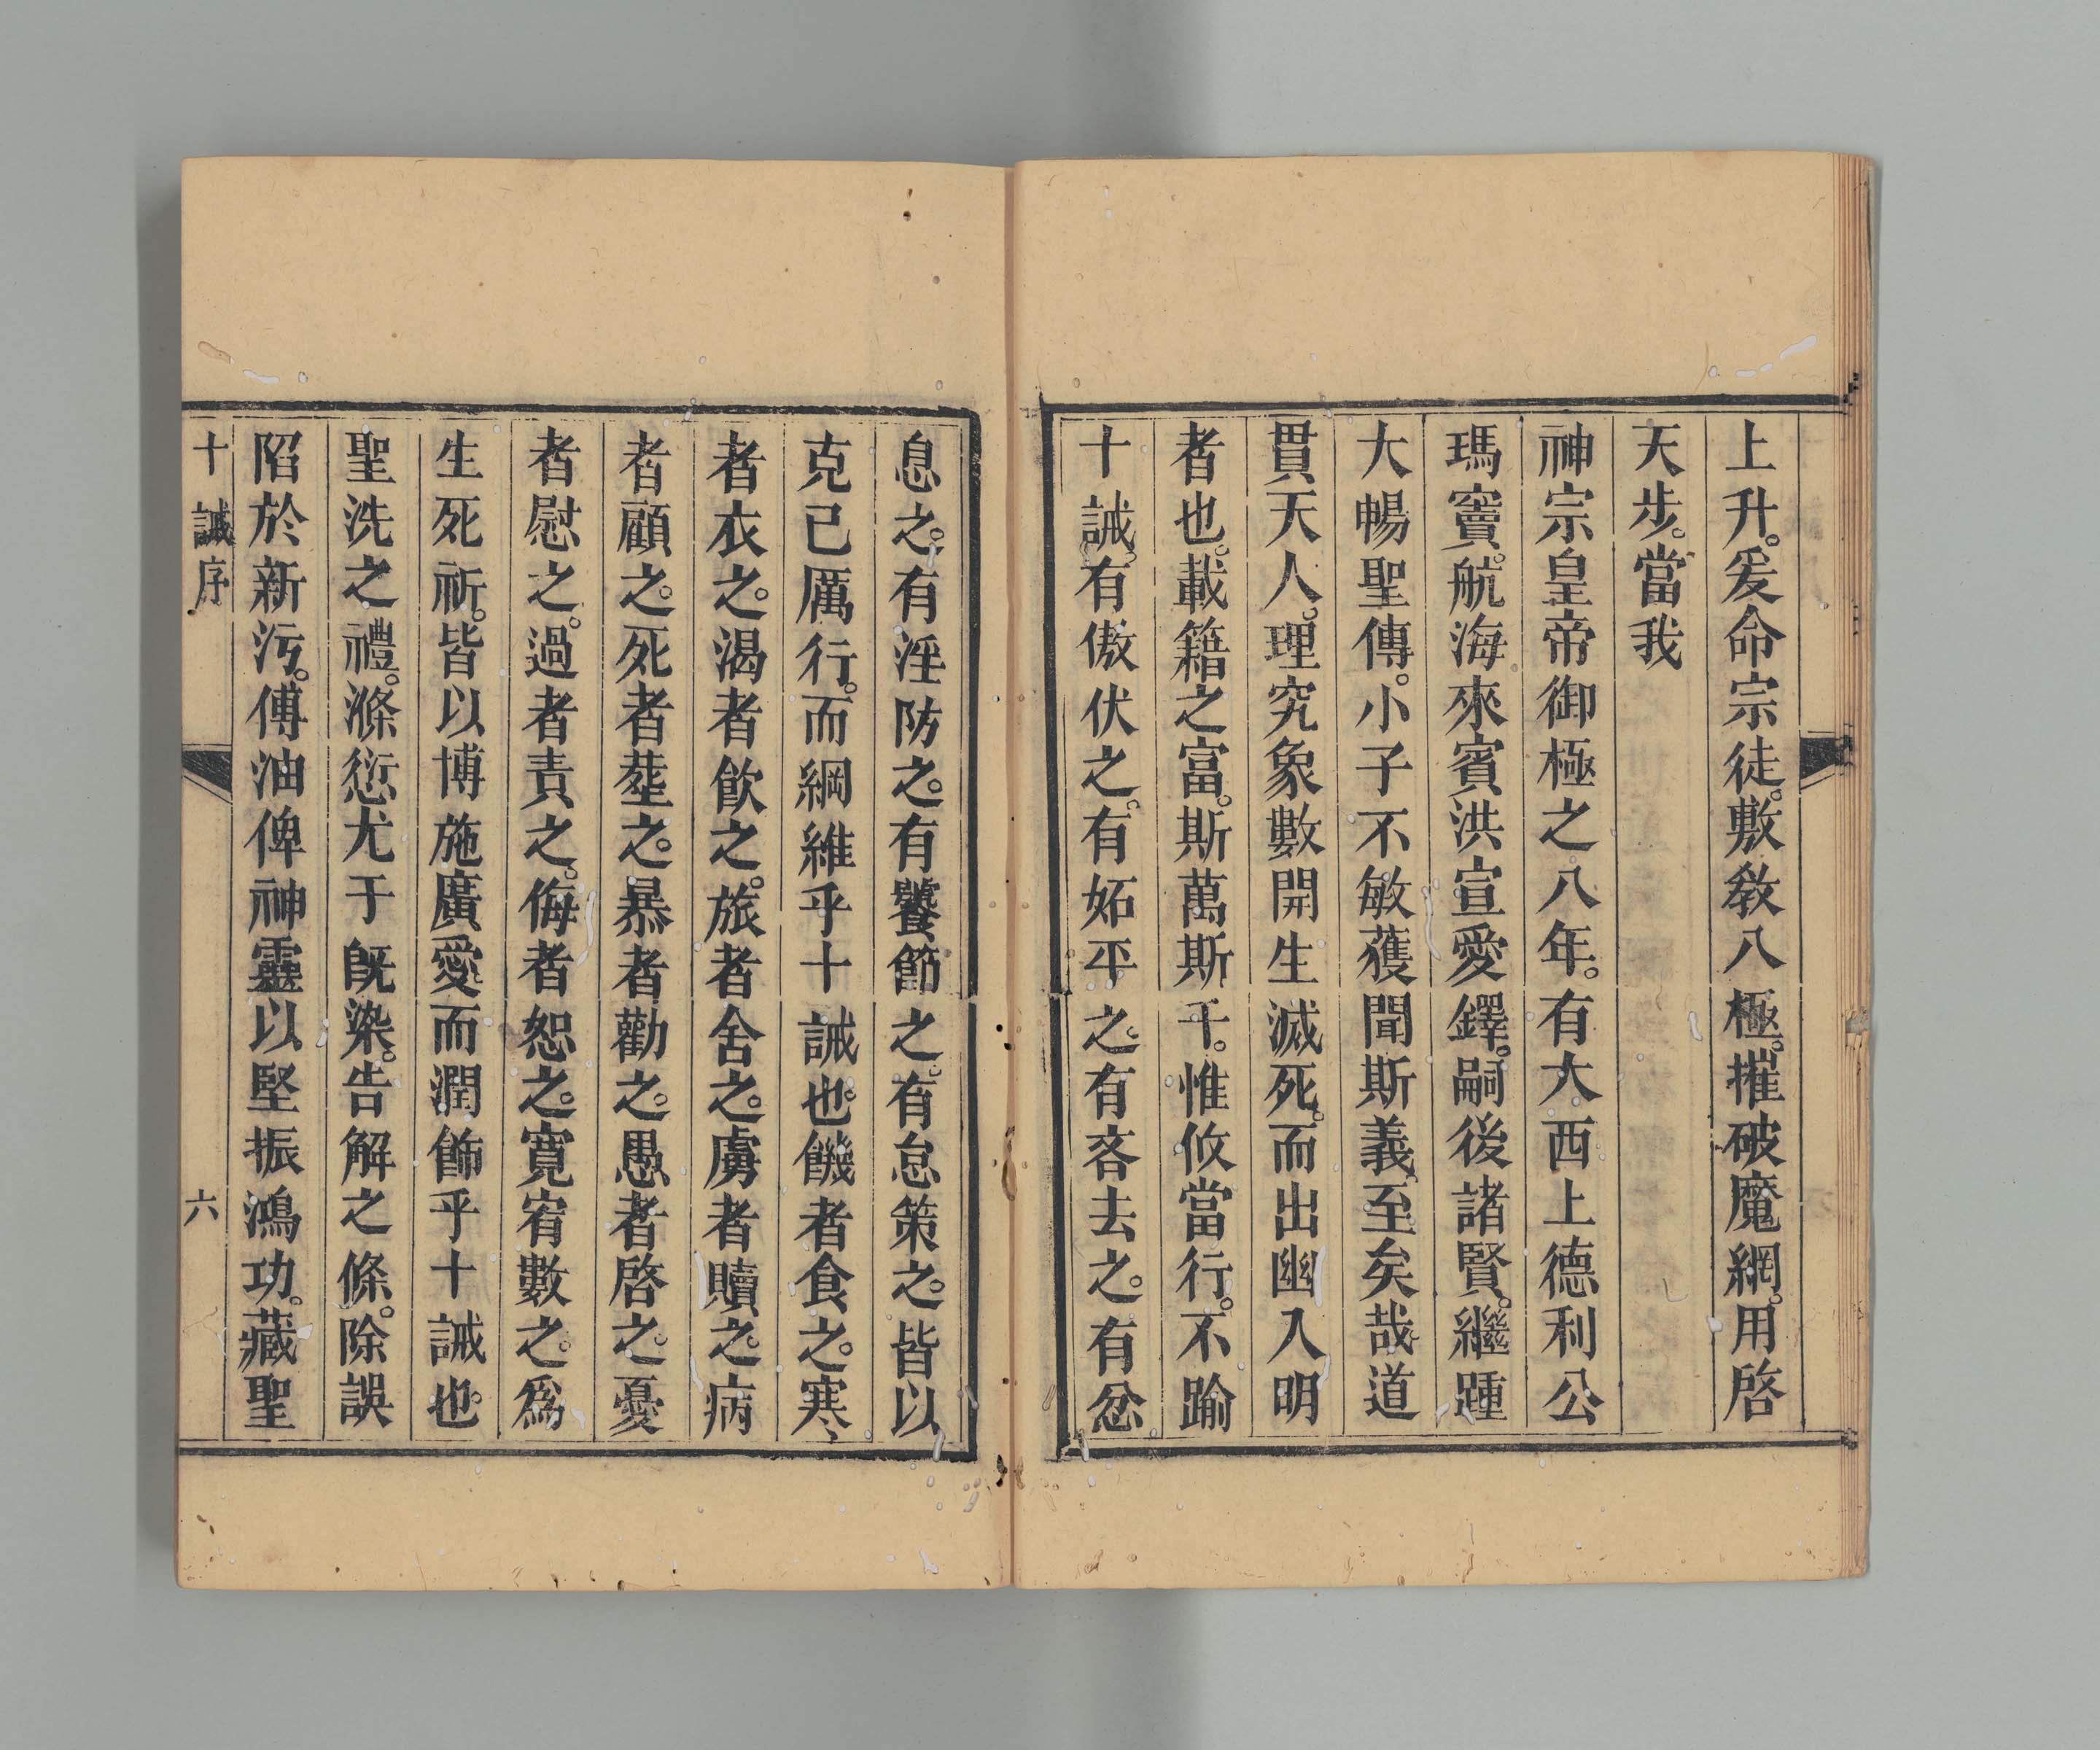 上升。爰命宗徒。敷敎八極。摧破魔網。用啓
天步。當我
神宗皇帝御極之八年。有大西上德利公
瑪竇。航海來賓洪宣愛鐸。嗣後諸賢。繼踵
大暢聖傳。小子不敏獲聞斯義。至矣哉道
貫天人。理究象數開生滅死。而出幽入明
者也。載籍之富。斯萬斯千。惟攸當行。不踰
十誡。有傲伏之。有妬平之。有吝去之。有忿
息之。有淫防之。有饕節之。有怠策之。皆以
克己厲行。而綱維乎十誡也。饑者食之。寒
者衣之。渴者飮之。旅者舍之。虜者贖之。病
者顧之。死者塟之。暴者勸之。愚者啓之。憂
者慰之。過者責之。侮者恕之。寛宥數之。爲
生死祈。皆以博施廣愛。而潤飾乎十誡也。
聖洗之禮。滌愆尤于旣染。告解之條。除誤
陷於新污。傅油俾神靈以堅振鴻功。藏聖
十誡序
六